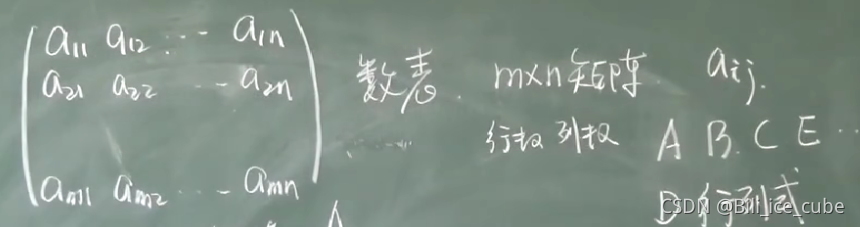 a11 a12 ··· a1n
a21 a22 ··· a2n
am1 am2 ··· amn
数表. m×n矩阵 aij.
行数 列数 A B. C E ···
D 行列式
A
CSDN @Bili_ice_cube